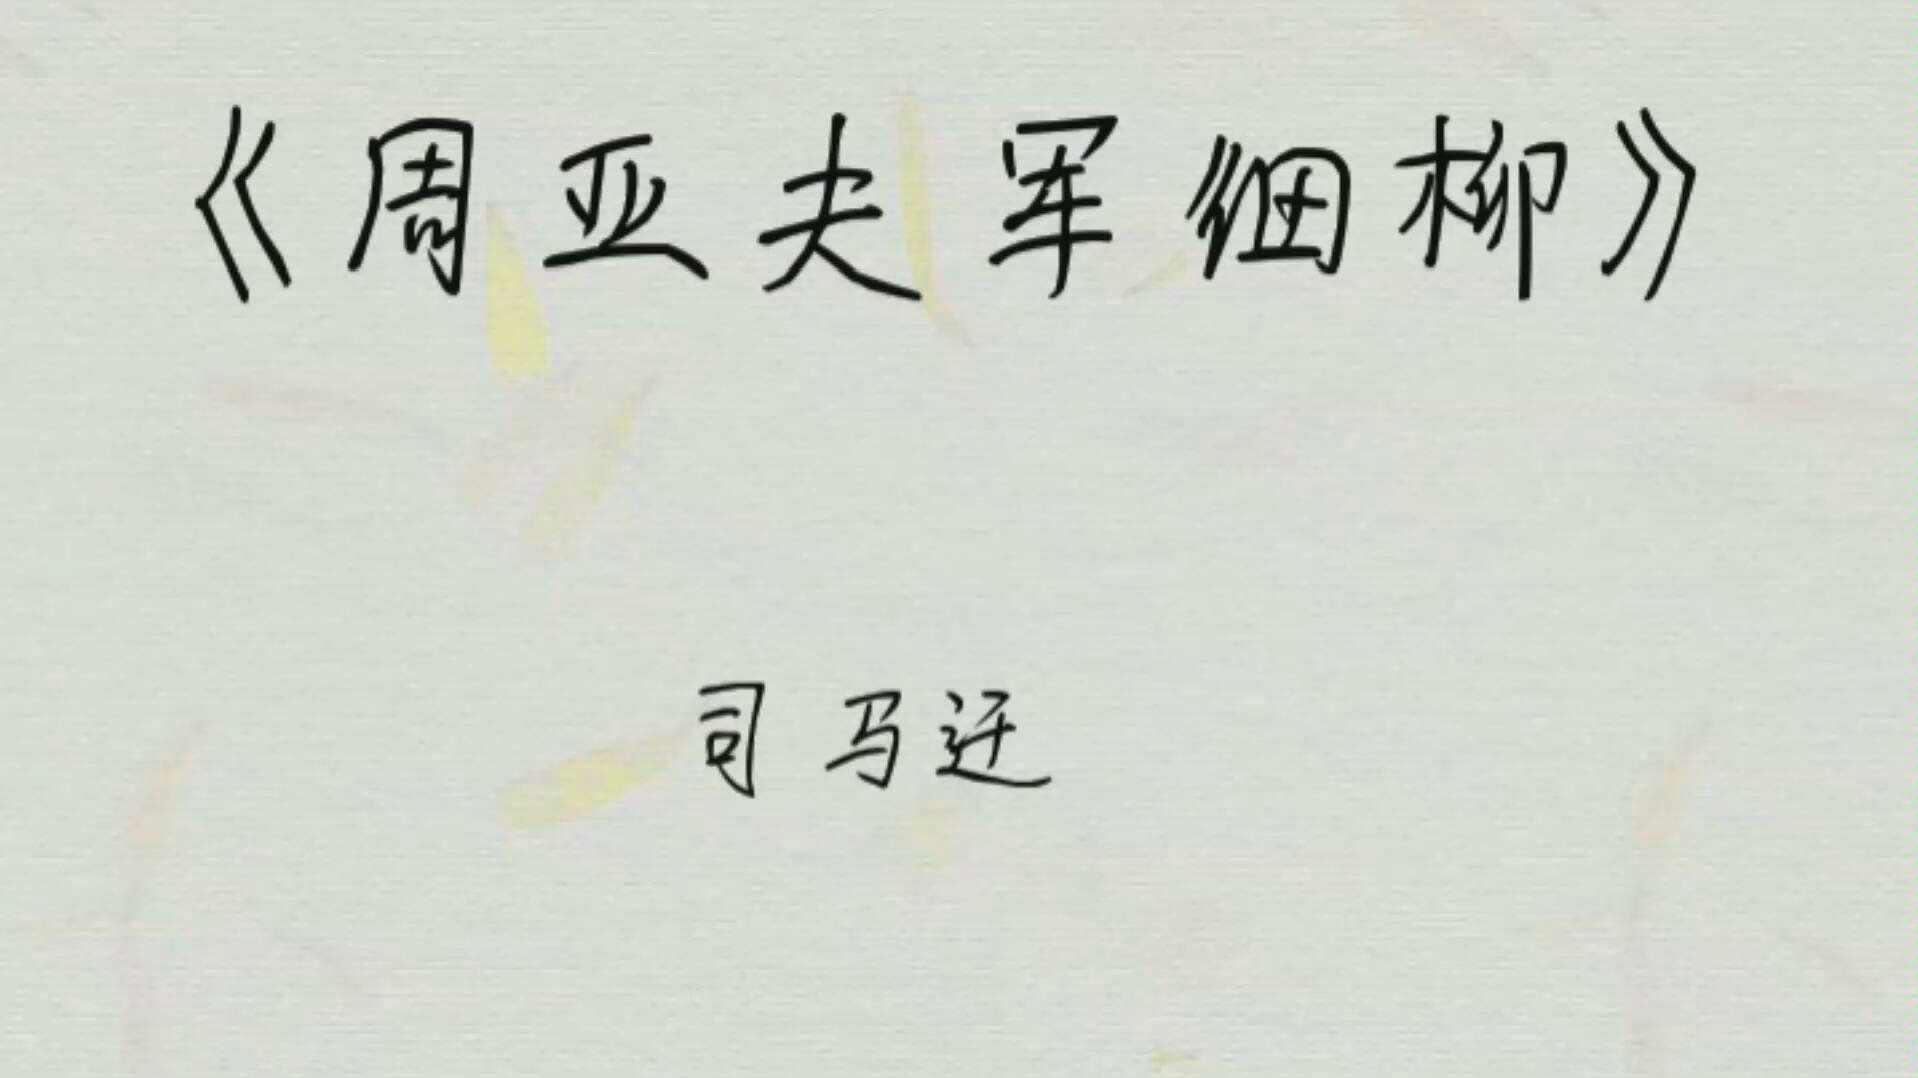 《周亚夫军细柳》
司马迁